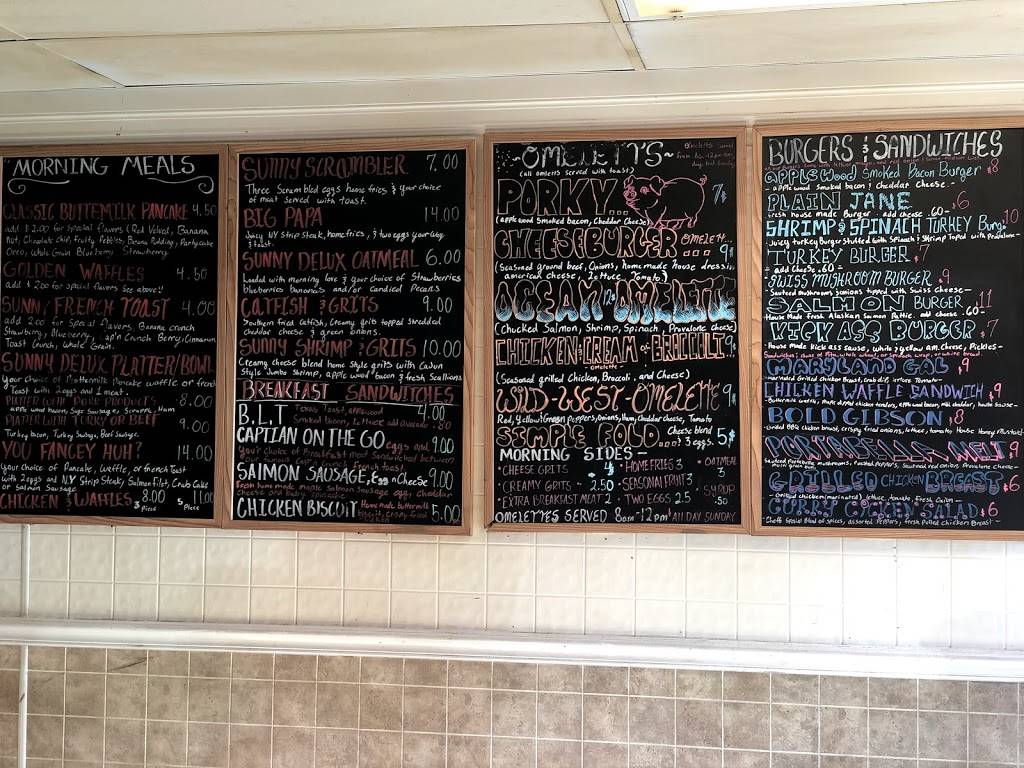 MORNING MEALS
CLASSIC BUTTEMILK PANCAKE 4.50
add $2.00 for special flavors (Red Velvet, Banana
Nut, Chocolate chip, fruity Pebbles, Banana Pudding, Partycake
Oreo, Whole Grain Blueberry Strawberry
GOLDEN WAFFLES 4.50
add $2.00 for special flavors see above!!
SUNNY FRENCH TOAST 4.00
add 2.00 for Special flavors, Banana crunch
Strawberry, Blueberry, Cap'n Crunch Berry, Cinnamon
Toast Crunch, Whole Grain.
SUNNY DELUX PLATTER BOWL
your choice of Buttermilk Pancake waffle or french
Toast with 2 eggs and 1 meat.
PLATTER WITH PORK PRODUCTS 8.00
apple wood bacon, Sage Sausage, Scrapple, Ham
PLATTER WITH TURKY OR BEEF 9.00
Turkey bacon, Turkey Sausage, Beef Sausage.
YOU FANCEY HUH? 14.00
your choice of Pancake, Waffle, or french Toast
with 2 eggs and N.Y Strip Steak, Salmon Filet, Crab Cake
or Salmon Sausage
CHICKEN & WAFFLES 8.00 3 Piece 11.00 5 Piece
SUNNY SCRAMBLER 7.00
Three Scrambled eggs home fries, & your choice
of meat Served with toast.
BIG PAPA 14.00
Juicy NY Strip steak, homefries, & two eggs your way
& toast.
SUNNY DELUX OATMEAL 6.00
Loaded with morning love & your choice of Strawberries
blueberries Bananas and/or Candied Pecans
CATFISH & GRITS 9.00
Southern fried Catfish, Creamy grits topped shredded
Cheddar Cheese & green onions.
SUNNY SHRIMP & GRITS 10.00
Creamy cheese blend home style grits with Cajun
Style Jumbo Shrimp, apple wood bacon & fresh Scallions
BREAKFAST SANDWICHES
B.L.T Texas Toast, applewood 4.00
Smoked bacon, lettuce add avocado .80
CAPTIAN ON THE GO eggs and 9.00
SALMON SAUSAGE, Egg n Cheese 9.00
Fresh home made Salmon Sausage egg, cheddar
cheese and baby spinach
CHICKEN BISCUIT Home made buttermilk 5.00
biscuit, crispy fried
-OMELETT'S-
(all omletts served with toast)
PORKY... 7
(applewood Smoked bacon, Cheddar Cheese)
CHEESEBURGER OMELETE... 9
(Seasoned ground beef, Onions, homemade house dressing
american cheese, Lettuce, Tomato)
OCEAN OMELETTE 12
(Chucked Salmon, Shrimp, Spinach, Provalone Cheese)
CHICKEN CREAM of BROCCILI... 9
- omelette -
(Seasoned grilled Chicken, Broccoli, and Cheese)
WILD-WEST-OMELETTE 9
Red, yellow & Green peppers, Onions, Ham, Cheddar Cheese, Tomato
SIMPLE FOLD... Cheese blend & 3 eggs. 5
MORNING SIDES -
• CHEESE GRITS 4 • HOMEFRIES 3 • OATMEAL 3
• CREAMY GRITS 2.50 • SEASONAL FRUIT 3 • SYRUP .50
• EXTRA BREAKFAST MEAT 2 • TWO EGGS 2.5
OMELETTES SERVED 8am-12pm & ALL DAY SUNDAY
BURGERS & SANDWICHES
APPLEWOOD Smoked Bacon Burger $8
- apple wood smoked bacon & cheddar Cheese -
PLAIN JANE $6
Fresh house made Burger - add cheese .60 -
SHRIMP & SPINACH TURKEY Burg. $10
- Juicy turkey Burger Stuffed with Spinach & Shrimp Toped with Provalone -
TURKEY BURGER $7
- add cheese .60 -
SWISS MUSHROOM BURGER $9
Sauteed mushrooms & onions topped with Swiss Cheese -
SALMON BURGER $11
House Made fresh Alaskan Salmon Pattie. add cheese -60-
KICK ASS BURGER $7
- House Made kick ass sause, white & yellow am. Cheese, Pickles -
MARYLAND GAL $9
- marinated grilled Chicken Breast, Crab dip, lettuce Tomato -
CHICKEN WAFFLE SANDWICH $9
BOLD GIBSON $8
Grilled BBQ chicken breast, crispy fried onions, lettuce, tomato House Honey mustard
PORTABELLA MELT $9
Sauteed Portabella mushrooms, & roasted Peppers, Sauteed red onions, Provalone Cheese -
GRILLED CHICKEN BREAST $6
- Grilled chicken (marinated) lettuce, tomato, fresh Onion -
CURRY CHICKEN SALAD $6
Chef's Special Blend of spices, assorted Peppers, fresh pulled Chicken Breast -